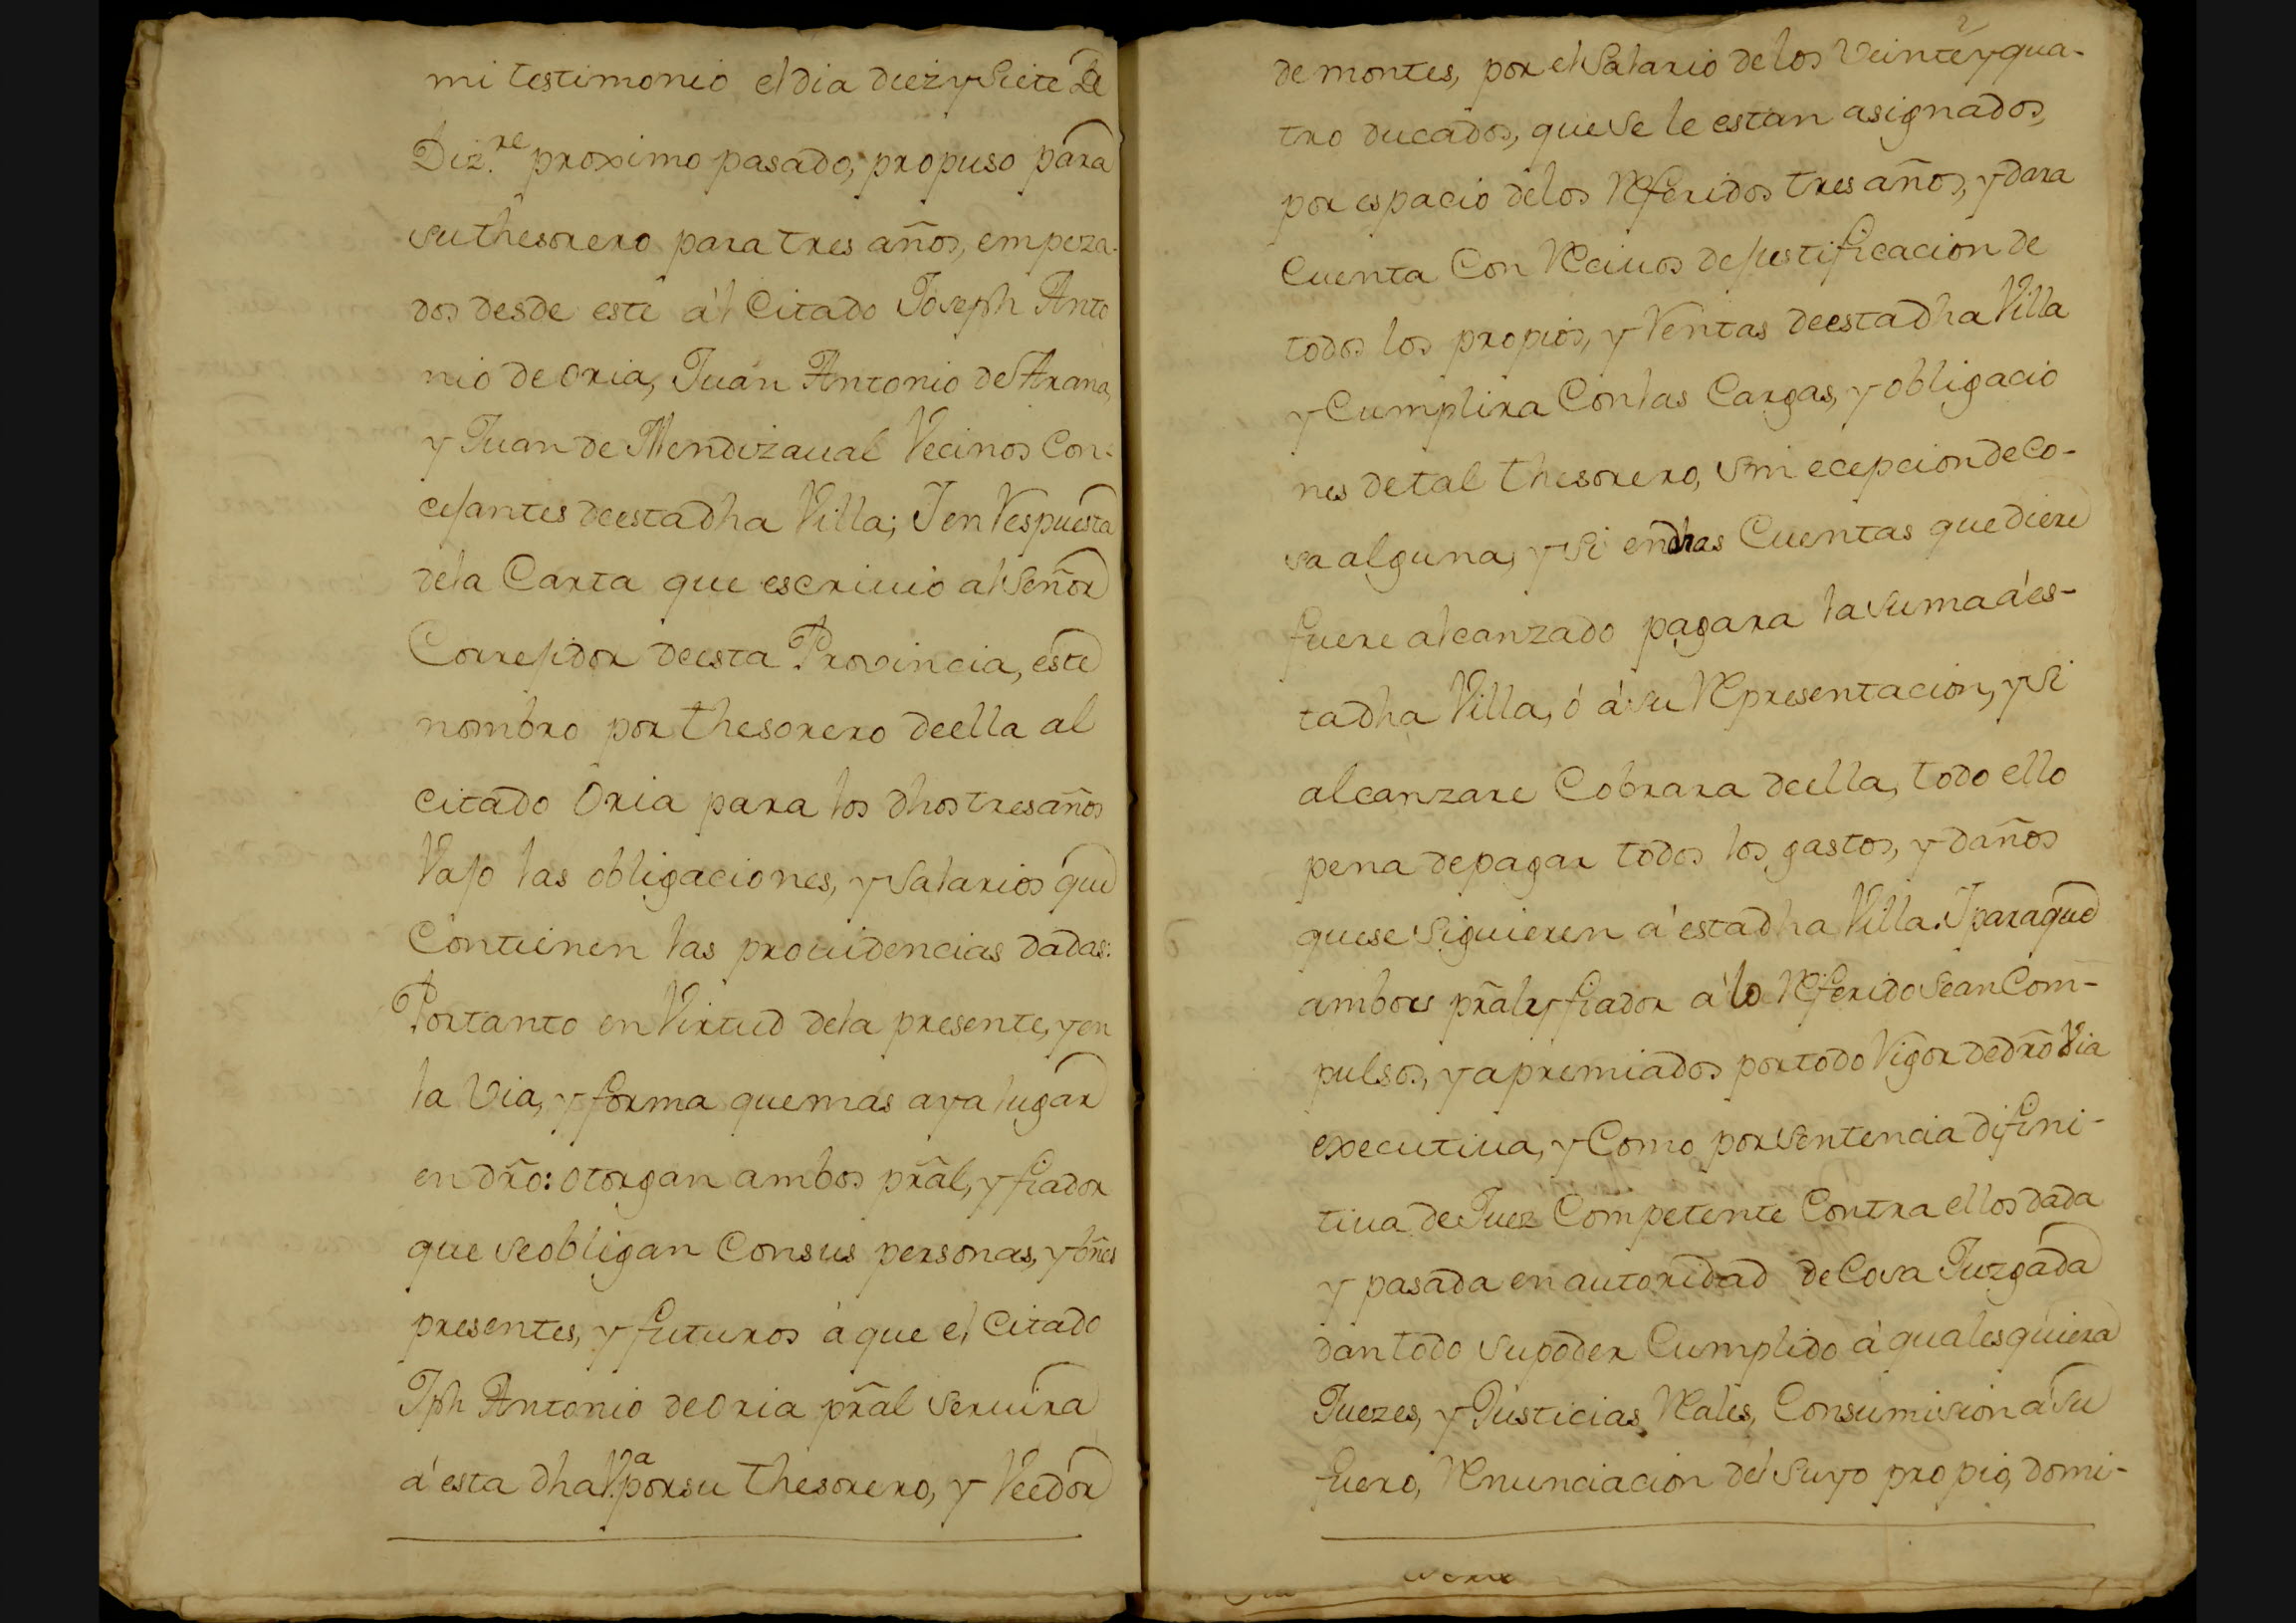 mi testimonio el dia diez y siete de
Diz.re proximo pasado, propuso para
su thesorero para tres años, empeza-
dos desde este ál Citado Joseph Anto
nio de Oria, Juan Antonio de Arana,
y Juan de Mendizaual Vecinos Con-
cejantes de esta dha Villa; I en Respuesta
dela Carta que escriuio al Señor
Correjidor de esta Provincia, este
nombro por thesorero de ella al
citado Oria para los dhos tres años
Vajo las obligaciones, y Salarios que
Contienen las prouidencias dadas:
Portanto en Virtud dela presente, y en
la Via, y forma que mas aya lugar
en dr̃o: otorgan ambos pr̃al, y fiador
que se obligan Con sus personas, y bñes
presentes, y futuros á que el Citado
Jph Antonio de Oria pr̃al seruira
á esta dha V.a por su thesorero, y Veedor
2
de montes, por el Salario de los Veinte y qua-
tro ducados, que se le estan asignados,
por espacio de los Referidos tres años, y dara
Cuenta Con Reciuos de justificacion de
todos los propios, y Rentas de esta dha Villa
y Cumplira Con las Cargas, y obligacio
nes de tal thesorero, sin ecepcion de Co-
sa alguna, y si en dhas Cuentas que diere
fuere alcanzado pagara la suma á es-
ta dha Villa, ó á su Representacion, y si
alcanzare Cobrara de ella, todo ello
pena de pagar todos los gastos, y daños
que se siguieren á esta dha Villa. I para que
ambos pr̃al y fiador á lo Referido sean Com-
pulsos, y apremiados por todo Rigor de dr̃o Via
executiua, y Como por sentencia difini-
tiua de Juez Competente Contra ellos dada
y pasada en autoridad de Cosa Juzgada
dan todo su poder Cumplido á qualesquiera
Juezes, y Justicias Reales, Con sumision á su
fuero, Renunciacion del suyo propio, domi-